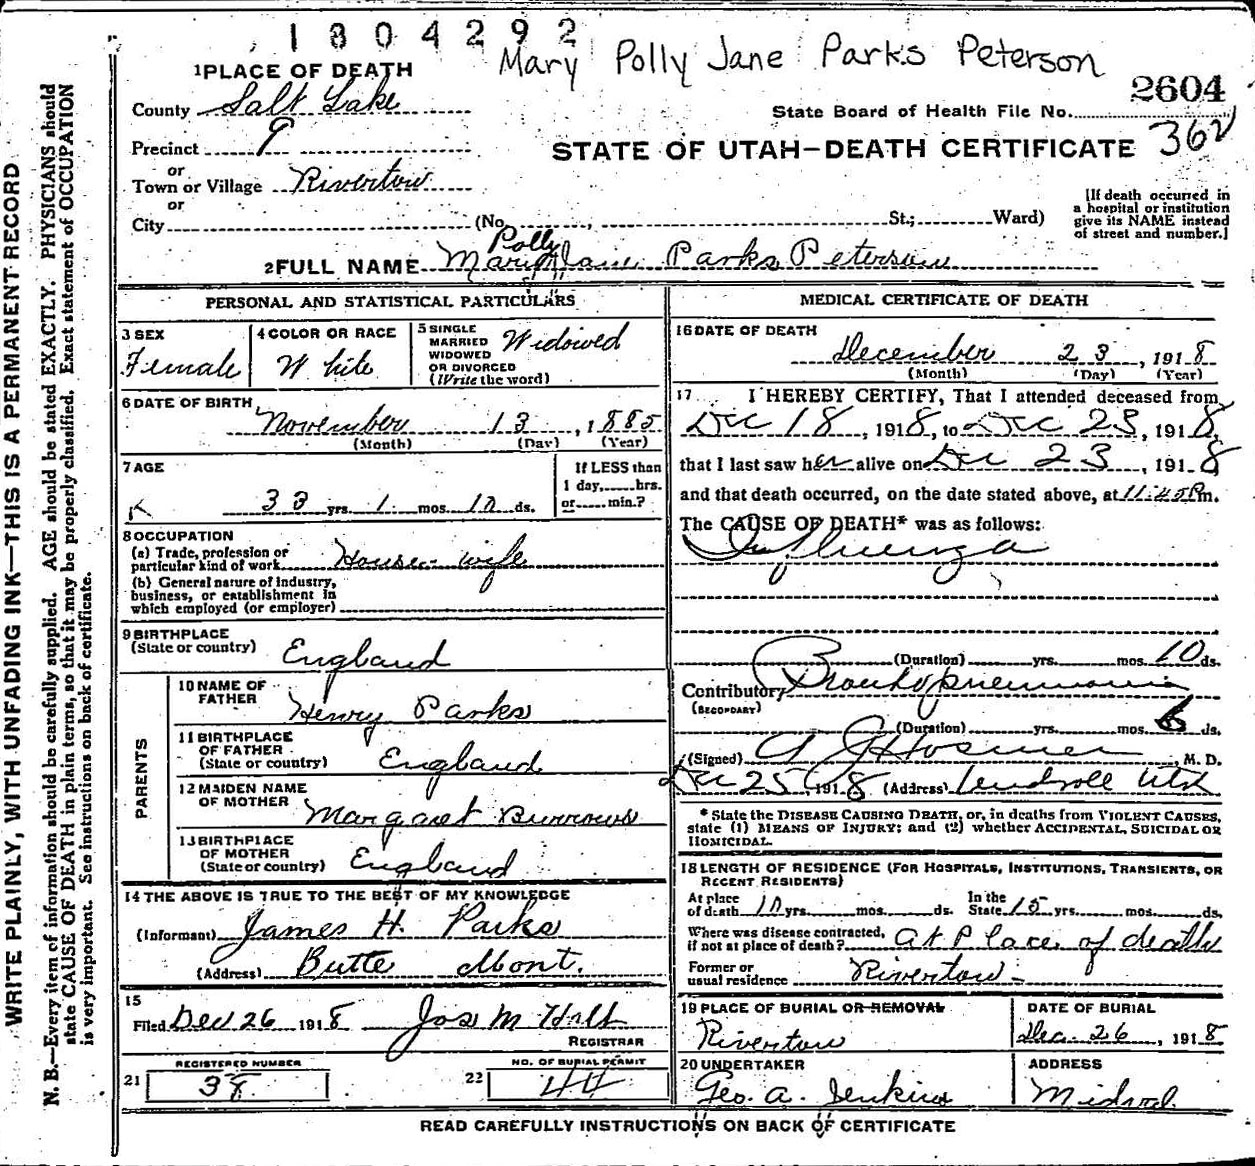 1804292
Mary Polly Jane Parks Peterson
2604
1 PLACE OF DEATH
County Salt Lake
State Board of Health File No.
Precinct 9
STATE OF UTAH—DEATH CERTIFICATE 362
or
Town or Village Riverton
or
City (No. St.; Ward)
[If death occurred in a hospital or institution give its NAME instead of street and number.]
Polly
2 FULL NAME Mary Jane Parks Peterson
PERSONAL AND STATISTICAL PARTICULARS
3 SEX
Female
4 COLOR OR RACE
White
5 SINGLE
MARRIED
WIDOWED
OR DIVORCED
(Write the word)
Widowed
6 DATE OF BIRTH
November 13, 1885
(Month) (Day) (Year)
7 AGE
33 yrs. 1 mos. 10 ds.
If LESS than
1 day, hrs.
or min.?
8 OCCUPATION
(a) Trade, profession or
particular kind of work House-wife
(b) General nature of industry,
business, or establishment in
which employed (or employer)
9 BIRTHPLACE
(State or country) England
PARENTS
10 NAME OF
FATHER Henry Parks
11 BIRTHPLACE
OF FATHER
(State or country) England
12 MAIDEN NAME
OF MOTHER Margaret Burrows
13 BIRTHPLACE
OF MOTHER
(State or country) England
14 THE ABOVE IS TRUE TO THE BEST OF MY KNOWLEDGE
(Informant) James H. Parks
(Address) Butte Mont.
15
Filed Dec 26 1918 Jos M Holt
REGISTRAR
REGISTERED NUMBER
21 38
NO. OF BURIAL PERMIT
22 44
MEDICAL CERTIFICATE OF DEATH
16 DATE OF DEATH
December 23, 1918
(Month) (Day) (Year)
17 I HEREBY CERTIFY, That I attended deceased from
Dec 18, 1918, to Dec 23, 1918,
that I last saw her alive on Dec 23, 1918
and that death occurred, on the date stated above, at 11:45 Pm.
The CAUSE OF DEATH* was as follows:
Influenza
(Duration) yrs. mos. 10 ds.
Contributory Bronchopneumonia
(SECONDARY)
(Duration) yrs. mos. 6 ds.
(Signed) A J Hosmer M. D.
Dec 25, 1918 (Address) Utah
*State the DISEASE CAUSING DEATH, or, in deaths from VIOLENT CAUSES,
state (1) MEANS OF INJURY; and (2) whether ACCIDENTAL, SUICIDAL OR
HOMICIDAL.
18 LENGTH OF RESIDENCE (FOR HOSPITALS, INSTITUTIONS, TRANSIENTS, OR
RECENT RESIDENTS)
At place
of death 10 yrs. mos. ds.
In the
State 15 yrs. mos. ds.
Where was disease contracted,
if not at place of death? at Place of death
Former or
usual residence Riverton
19 PLACE OF BURIAL OR REMOVAL
Riverton
DATE OF BURIAL
Dec. 26, 1918
20 UNDERTAKER
Geo. A. Jenkins
ADDRESS
Midval
READ CAREFULLY INSTRUCTIONS ON BACK OF CERTIFICATE
WRITE PLAINLY, WITH UNFADING INK—THIS IS A PERMANENT RECORD
N. B.—Every item of information should be carefully supplied. AGE should be stated EXACTLY. PHYSICIANS should
state CAUSE OF DEATH in plain terms, so that it may be properly classified. Exact statement of OCCUPATION
is very important. See instructions on back of certificate.